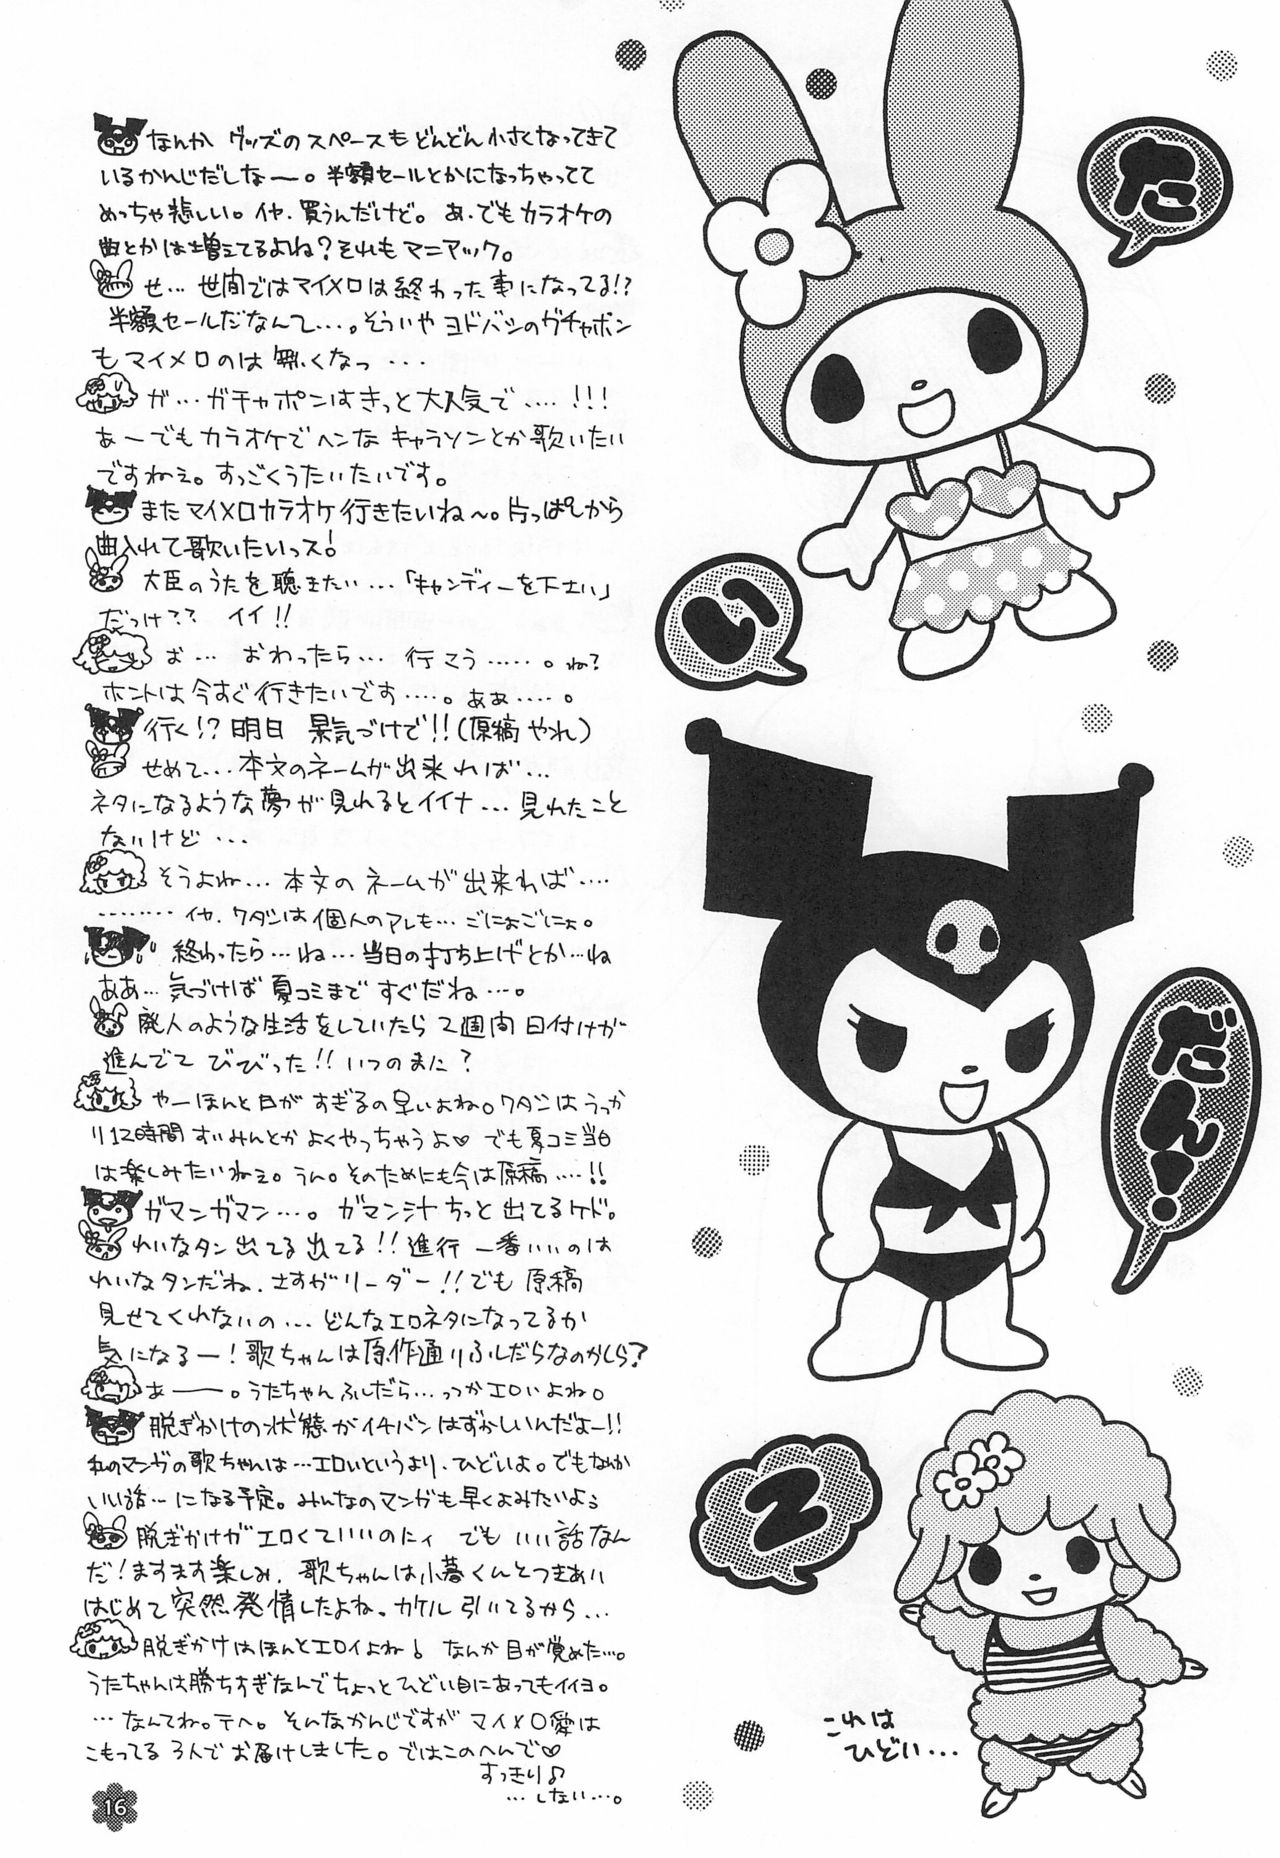 なんか グッズのスペースも どんどん 小さくなってきて
いるかんじだしなー。半額セールとかになっちゃってて
めっちゃ悲しい。イヤ、買うんだけど。あ、でもカラオケの
曲とかは増えてるよね？それもマニアック。
せ… 世間ではマイメロは終わった事になってる!?
半額セールだなんて…。そういや ヨドバシのガチャポン
も マイメロのは 無くなっ・・・
ガ…ガチャポンはきっと大人気で….!!!
あーでもカラオケでヘンな キャラソンとか歌いたい
ですねぇ。すっごくうたいたいです。
またマイメロカラオケ行きたいね〜。片っぱしから
曲入れて歌いたいっス!
大臣のうたを聴きたい…「キャンディーを下さい」
だっけ?? イイ!!
お… おわったら… 行こう……。ね?
ホントは今すぐ行きたいです….。ああ….。
行く!? 明日 景気づけで!!(原稿やれ)
せめて…本文のネームが出来れば…
ネタになるような夢が見れるとイイナ… 見れたこと
ないけど…
そうよね… 本文の ネームが 出来れば….
……… イヤ、ワタシは個人のアレも… ごにょごにょ。
終わったら…ね… 当日の打ち上げとか…ね
ああ… 気づけば 夏コミまで すぐだね…。
廃人のような生活をしていたら 2週間 日付けが
進んでて びびった!! いつのまに?
やーほんと日が すぎるの早いよね。ワタシはうっか
り12時間 すいみんとか よくやっちゃうよ♡ でも夏コミ当日
は楽しみたいねぇ。うん。そのためにも今は原稿….!!
ガマンガマン…。ガマン汁 ちっと 出てるケド。
れいなタン 出てる 出てる!! 進行 一番いいのは
れいなタンだね、さすがリーダー!! でも 原稿
見せてくれないの… どんなエロネタになってるか
気になるー! 歌ちゃんは原作通りふしだらなのかしら?
あー。うたちゃんふしだら…っつかエロいよね。
脱ぎかけの状態がイチバンはずかしいんだよー!!
私のマンガの歌ちゃんは…エロいというより、ひどいよ。でもなんか
いい話…になる予定。みんなのマンガも早くよみたいよう
脱ぎかけがエロくていいのにィ でも いい話なん
だ! ますます楽しみ、歌ちゃんは小暮くんとつきあい
はじめて 突然発情したよね。カケル 引いてるから…
脱ぎかけはほんとエロイよね! なんか目が覚めた…。
うたちゃんは勝ちすぎなんでちょっとひどい目にあってもイイヨ。
…なんてね。テヘ。そんなかんじですが マイメロ愛は
こもってる 3人でお届けしました。ではこのへんで♡
すっきり♪
…しない…。
16
た
い
だん!
2
これは
ひどい…